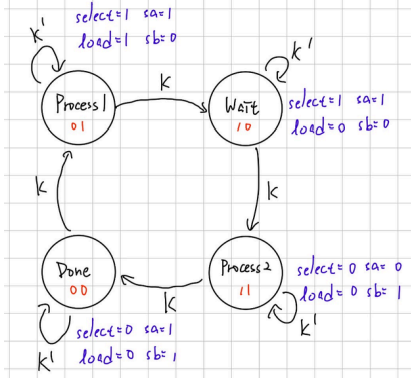 select=1 sa=1
load=1 sb=0
K'
K'
K
Process1
01
Wait
10
select=1 sa=1
load=0 sb=0
K
K
Done
00
Process2
11
select=0 sa=0
load=0 sb=1
K
K'
K'
select=0 sa=1
load=0 sb=1